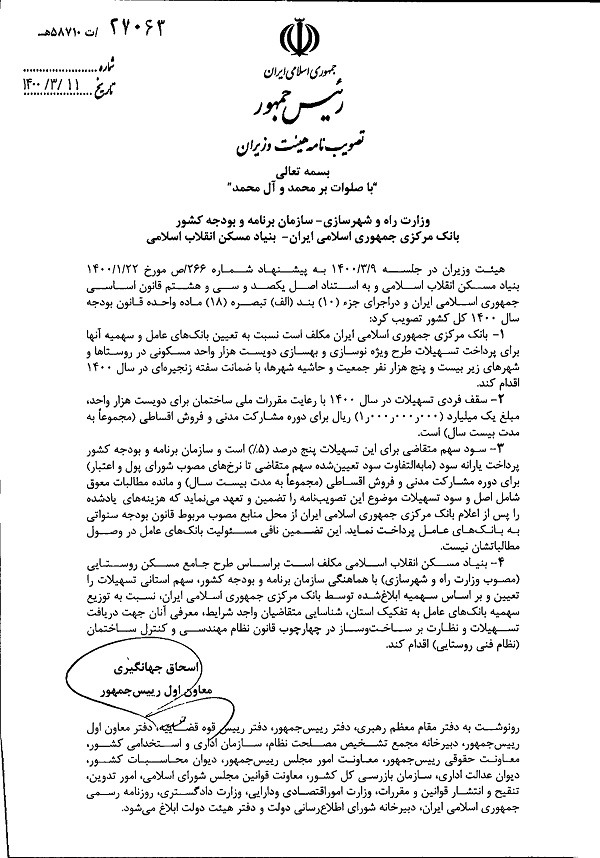 ۲۷۰۶۳ /ت ۵۸۷۱۰هـ
شماره
تاریخ ۱۴۰۰/۳/۱۱
جمهوری اسلامی ایران
رئیس جمهور
تصویب نامه هیئت وزیران
بسمه تعالی
"با صلوات بر محمد و آل محمد"
وزارت راه و شهرسازی- سازمان برنامه و بودجه کشور
بانک مرکزی جمهوری اسلامی ایران- بنیاد مسکن انقلاب اسلامی
هیئت وزیران در جلسه ۱۴۰۰/۳/۹ به پیشنهاد شماره ۲۶۶/ص مورخ ۱۴۰۰/۱/۲۲
بنیاد مسکن انقلاب اسلامی و به استناد اصل یکصد و سی و هشتم قانون اساسی
جمهوری اسلامی ایران و دراجرای جزء (۱۰) بند (الف) تبصره (۱۸) ماده واحده قانون بودجه
سال ۱۴۰۰ کل کشور تصویب کرد:
۱- بانک مرکزی جمهوری اسلامی ایران مکلف است نسبت به تعیین بانک‌های عامل و سهمیه آنها
برای پرداخت تسهیلات طرح ویژه نوسازی و بهسازی دویست هزار واحد مسکونی در روستاها و
شهرهای زیر بیست و پنج هزار نفر جمعیت و حاشیه شهرها، با ضمانت سفته زنجیره‌ای در سال ۱۴۰۰
اقدام کند.
۲- سقف فردی تسهیلات در سال ۱۴۰۰ با رعایت مقررات ملی ساختمان برای دویست هزار واحد،
مبلغ یک میلیارد (۱٫۰۰۰٫۰۰۰٫۰۰۰) ریال برای دوره مشارکت مدنی و فروش اقساطی (مجموعاً به
مدت بیست سال) است.
۳- سود سهم متقاضی برای این تسهیلات پنج درصد (۵٪) است و سازمان برنامه و بودجه کشور
پرداخت یارانه سود (مابه‌التفاوت سود تعیین‌شده سهم متقاضی تا نرخ‌های مصوب شورای پول و اعتبار)
برای دوره مشارکت مدنی و فروش اقساطی (مجموعاً به مدت بیست سال) و مانده مطالبات معوق
شامل اصل و سود تسهیلات موضوع این تصویب‌نامه را تضمین و تعهد می‌نماید که هزینه‌های یادشده
را پس از اعلام بانک مرکزی جمهوری اسلامی ایران از محل منابع مصوب مربوط قانون بودجه سنواتی
به بانک‌های عامل پرداخت نماید. این تضمین نافی مسئولیت بانک‌های عامل در وصول
مطالباتشان نیست.
۴- بنیاد مسکن انقلاب اسلامی مکلف است براساس طرح جامع مسکن روستایی
(مصوب وزارت راه و شهرسازی) با هماهنگی سازمان برنامه و بودجه کشور، سهم استانی تسهیلات را
تعیین و بر اساس سهمیه ابلاغ‌شده توسط بانک مرکزی جمهوری اسلامی ایران، نسبت به توزیع
سهمیه بانک‌های عامل به تفکیک استان، شناسایی متقاضیان واجد شرایط، معرفی آنان جهت دریافت
تسهیلات و نظارت بر ساخت‌وساز در چهارچوب قانون نظام مهندسی و کنترل ساختمان
(نظام فنی روستایی) اقدام کند.
اسحاق جهانگیری
معاون اول رییس‌جمهور
رونوشت به دفتر مقام معظم رهبری، دفتر رییس‌جمهور، دفتر رییس قوه قضاییه، دفتر معاون اول
رییس‌جمهور، دبیرخانه مجمع تشخیص مصلحت نظام، سازمان اداری و استخدامی کشور،
معاونت حقوقی رییس‌جمهور، معاونت امور مجلس رییس‌جمهور، دیوان محاسبات کشور،
دیوان عدالت اداری، سازمان بازرسی کل کشور، معاونت قوانین مجلس شورای اسلامی، امور تدوین،
تنقیح و انتشار قوانین و مقررات، وزارت اموراقتصادی ودارایی، وزارت دادگستری، روزنامه رسمی
جمهوری اسلامی ایران، دبیرخانه شورای اطلاع‌رسانی دولت و دفتر هیئت دولت ابلاغ می‌شود.